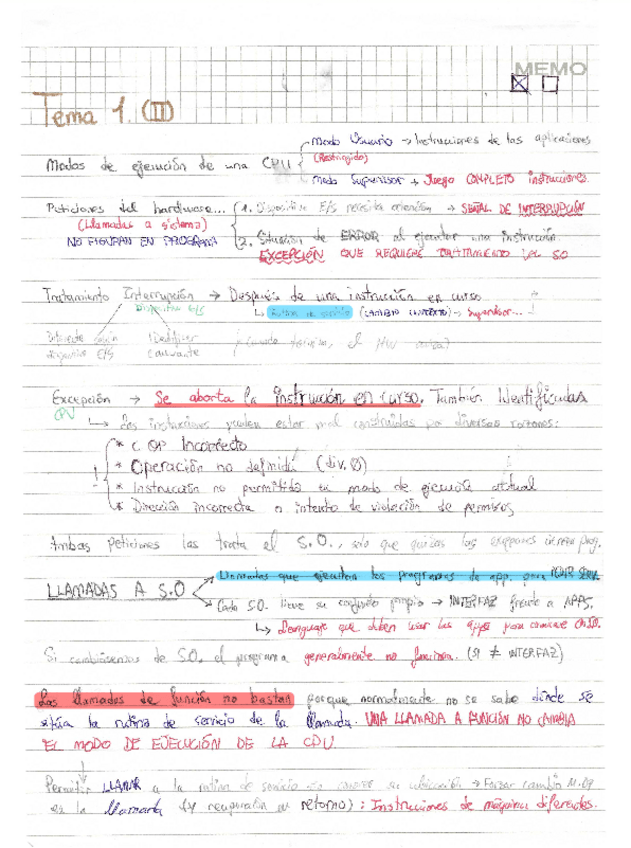 MEMO
Tema 1. (II)
Modo Usuario → Instrucciones de las aplicaciones
(Restringido)
Modos de ejecución de una CPU
Modo Supervisor → Juego COMPLETO instrucciones
Peticiones del hardware... 1. Dispositivo E/S necesita atención → SEÑAL DE INTERRUPCIÓN
(Llamadas a sistema)
NO FIGURAN EN PROGRAMA 2. Situación de ERROR al ejecutar una instrucción
EXCEPCIÓN QUE REQUIERE TRATAMIENTO DEL SO
Tratamiento Interrupción → Después de una instrucción en curso
Dispositivo E/S ↳ Rutina de servicio (CAMBIO CONTEXTO) → Supervisor...
Diferente según Identificar (cuando termina, el HW avisa)
dispositivo E/S causante
Excepción → Se aborta la instrucción en curso. También Identificadas
CPU
↳ Las instrucciones pueden estar mal construidas por diversas razones:
* C OP Incorrecto
* Operación no definida (div. 0)
* Instrucción no permitida en modo de ejecución actual
* Dirección incorrecta o intento de violación de permisos
Ambas peticiones las trata el S.O., sólo que quizás las excepciones prog.
Llamadas que ejecutan los programas de app. para PEDIR SERV.
LLAMADAS A S.O
Cada S.O. tiene su conjunto propio → INTERFAZ frente a APPS.
↳ Lenguaje que deben usar las apps para S.O.
Si cambiásemos de S.O. el programa generalmente no funciona. (SI ≠ INTERFAZ)
Las llamadas de función no bastan porque normalmente no se sabe dónde se
sitúa la rutina de servicio de la llamada. UNA LLAMADA A FUNCIÓN NO CAMBIA
EL MODO DE EJECUCIÓN DE LA CPU
Permitir LLAMAR a la rutina de servicio sin conocer su ubicación → Forzar cambio
en la llamada (y recuperación en retorno): Instrucciones de máquina diferentes.